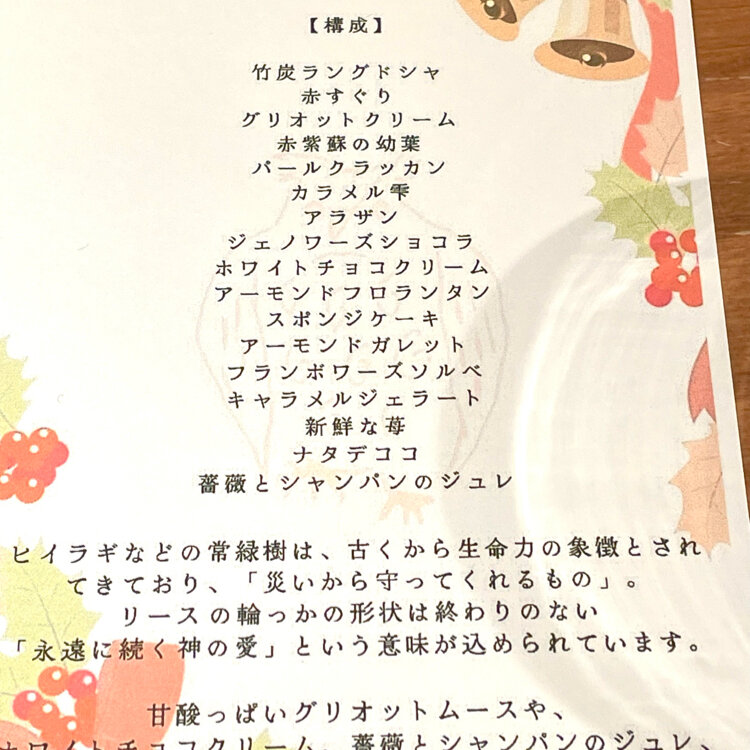 【構成】
竹炭ラングドシャ
赤すぐり
グリオットクリーム
赤紫蘇の幼葉
パールクラッカン
カラメル雫
アラザン
ジェノワーズショコラ
ホワイトチョコクリーム
アーモンドフロランタン
スポンジケーキ
アーモンドガレット
フランボワーズソルベ
キャラメルジェラート
新鮮な苺
ナタデココ
薔薇とシャンパンのジュレ
ヒイラギなどの常緑樹は、古くから生命力の象徴とされ
てきており、「災いから守ってくれるもの」。
リースの輪っかの形状は終わりのない
「永遠に続く神の愛」という意味が込められています。
甘酸っぱいグリオットムースや、
ホワイトチョコクリーム、薔薇とシャンパンのジュレ、